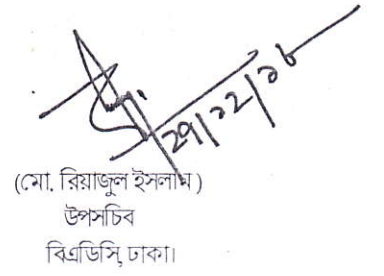 ২৭/১২/১৮
(মো. রিয়াজুল ইসলাম)
উপসচিব
বিএডিসি, ঢাকা।